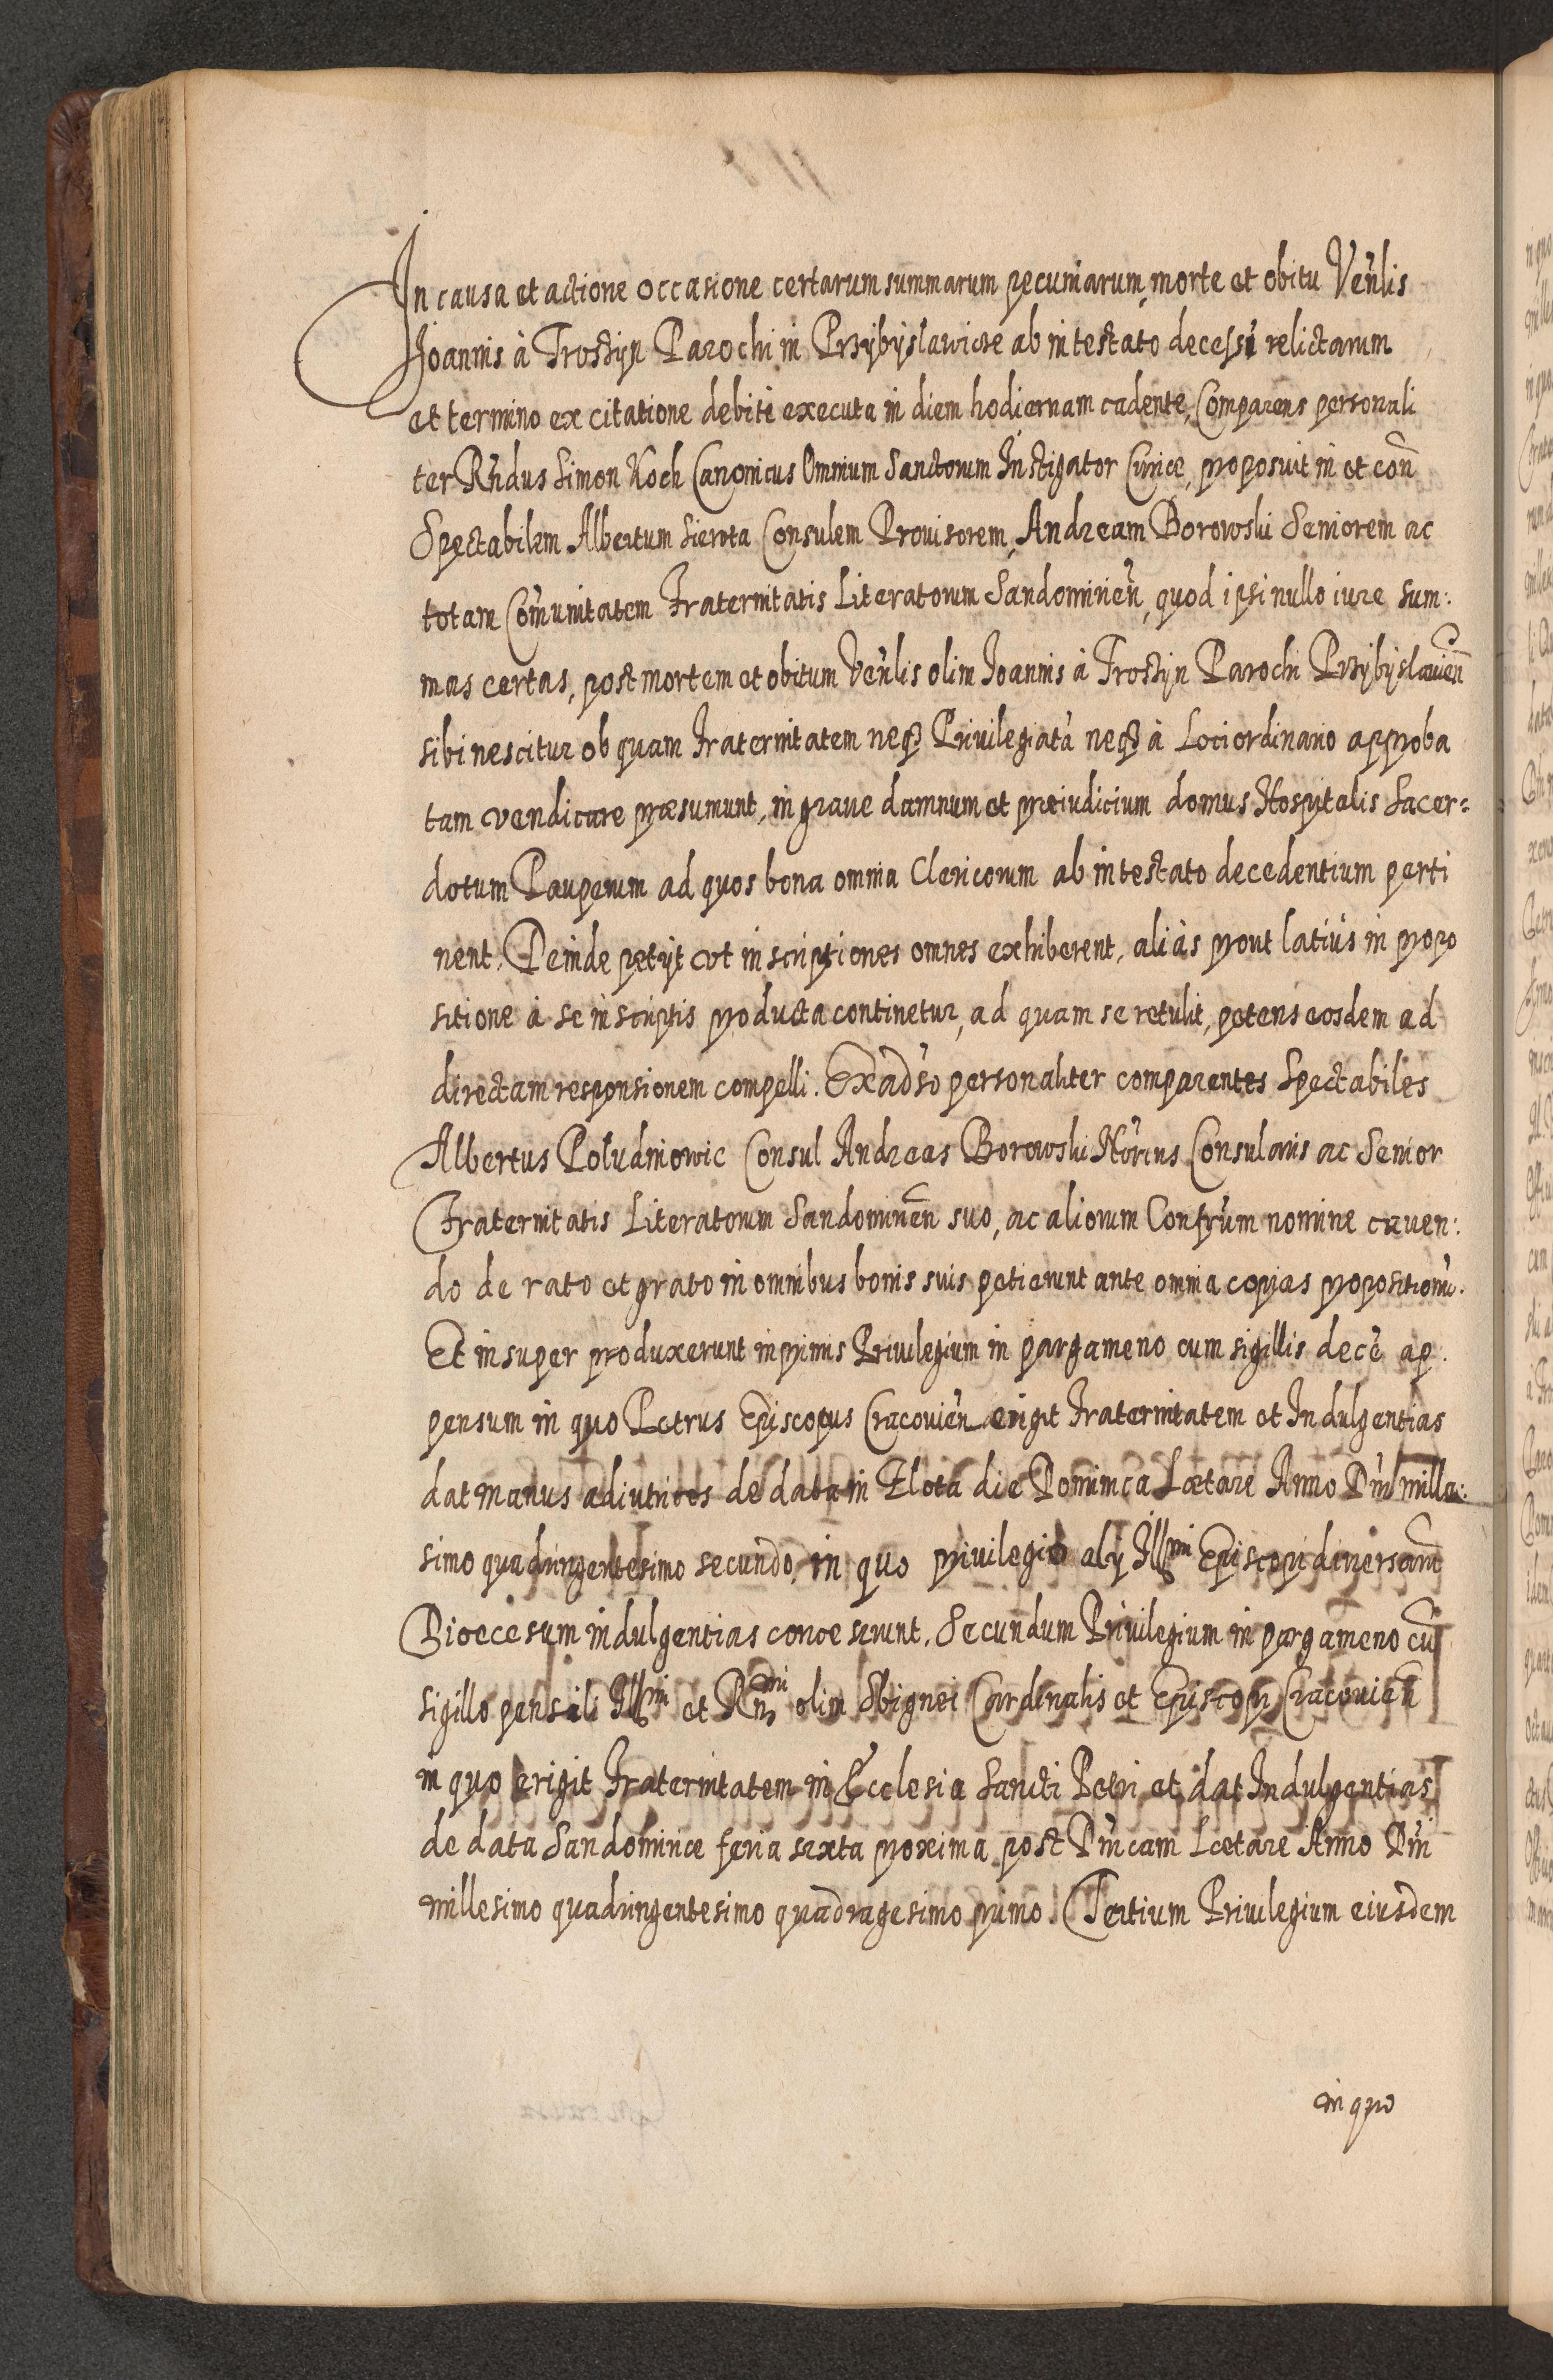 In causa et actione occasione certarum summarum pecuniarum, morte et obitu Veñlis
Joannis à Trostijn Parochi in Przÿbÿslawice ab intestato decessi relictarum
et termino ex citatione debite executa in diem hodiernam cadente, Comparens personali
ter Rñdus Simon Koch Canonicus Omnium Sanctorum Instigator Curiæ, proposuit in et con̄
Spectabilem Albertum Sierota Consulem Provisorem, Andream Borowski Seniorem ac
totam Com̃unitatem Fraternitatis Literatorum Sandomirien̄, quod ipsi nullo iure sum:
mas certas, post mortem et obitum Veñlis olim Joannis à Trostijn Parochi Przÿbÿslavien̄
sibi nescitur ob quam Fraternitatem neq₃ Privilegiatã neq₃ à Loci ordinario approba
tam vendicare præsumunt, in grave damnum et præiudicium domus Hospitalis Sacer=
dotum Pauperum ad quos bona omnia Clericorum ab intestato decedentium perti
nent. Deinde petijt vt inscriptiones omnes exhiberent, aliàs prout latiùs in propo
sitione à se in scriptis producta continetur, ad quam se retulit, petens eosdem ad
directam responsionem compelli. Exad̃so personaliter comparentes Spectabiles
Albertus Poludniowic Consul Andreas Borowski No͠rius Consularis ac Senior
Fraternitatis Literatorum Sandomirien̄ suo, ac aliorum Confr̃um nomine caven:
do de rato et grato in omnibus bonis suis petierunt ante omnia copias propositionũ.
Et insuper produxerunt inprimis Privilegium in pargameno cum sigillis decẽ ap
pensum in quo Petrus Episcopus Cracovien̄ erigit Fraternitatem et Indulgentias
dat manus adiutrices de data in Zlota die Dominica Lætare Anno Dñi mille:
simo quadringentesimo secundo, in quo privilegio alij Illmi Episcopi diversarũ
Dioecesum indulgentias concesserunt. Secundum Privilegium in pargameno cũ
sigillo pensili Illmi et Rñdmi olim Sbignei Cardinalis et Episcopi Cracovien̄
in quo erigit Fraternitatem in Ecclesia Sancti Petri et dat Indulgentias
de data Sandomiriæ feria sexta proxima post Dñicam Lætare Anno Dñi
millesimo quadringentesimo quadragesimo primo. Tertium Privilegium eiusdem
in quo